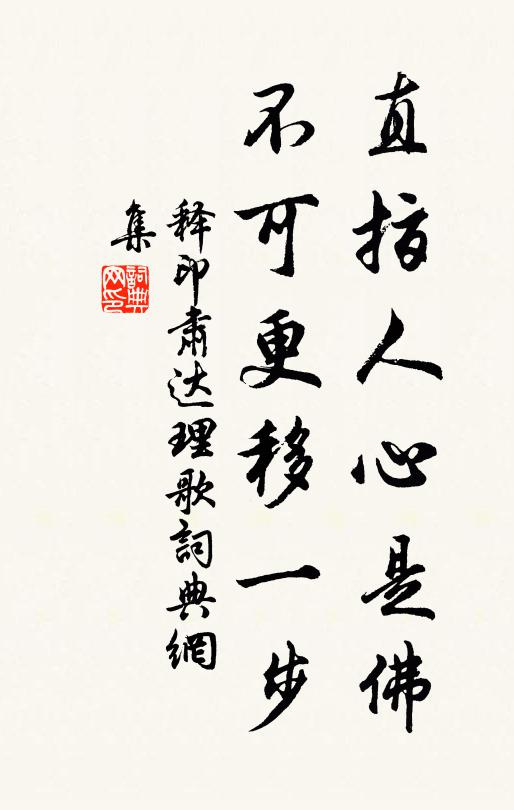 直指人心是佛
不可更移一步
释印肃达理歌詞典網
集
詞典網印